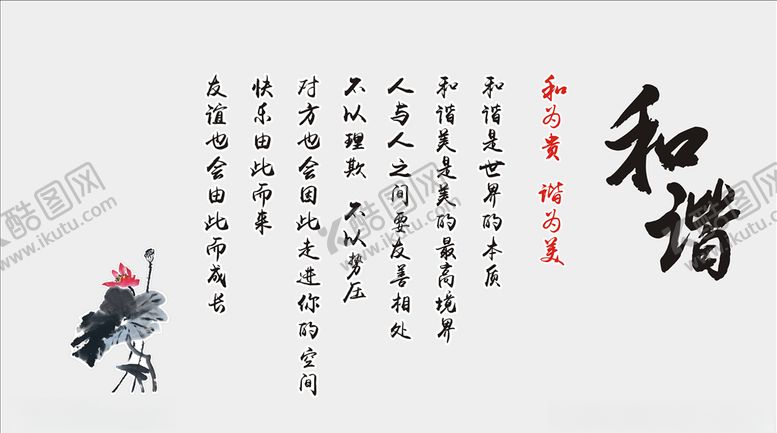 和谐
和为贵 谐为美
和谐是世界的本质
和谐美是美的最高境界
人与人之间要友善相处
不以理欺 不以势压
对方也会因此走进你的空间
快乐由此而来
友谊也会由此而成长
酷图网
www.ikutu.com
酷图网
www.ikutu.com
酷图网
www.ikutu.com
酷图网
www.ikutu.com